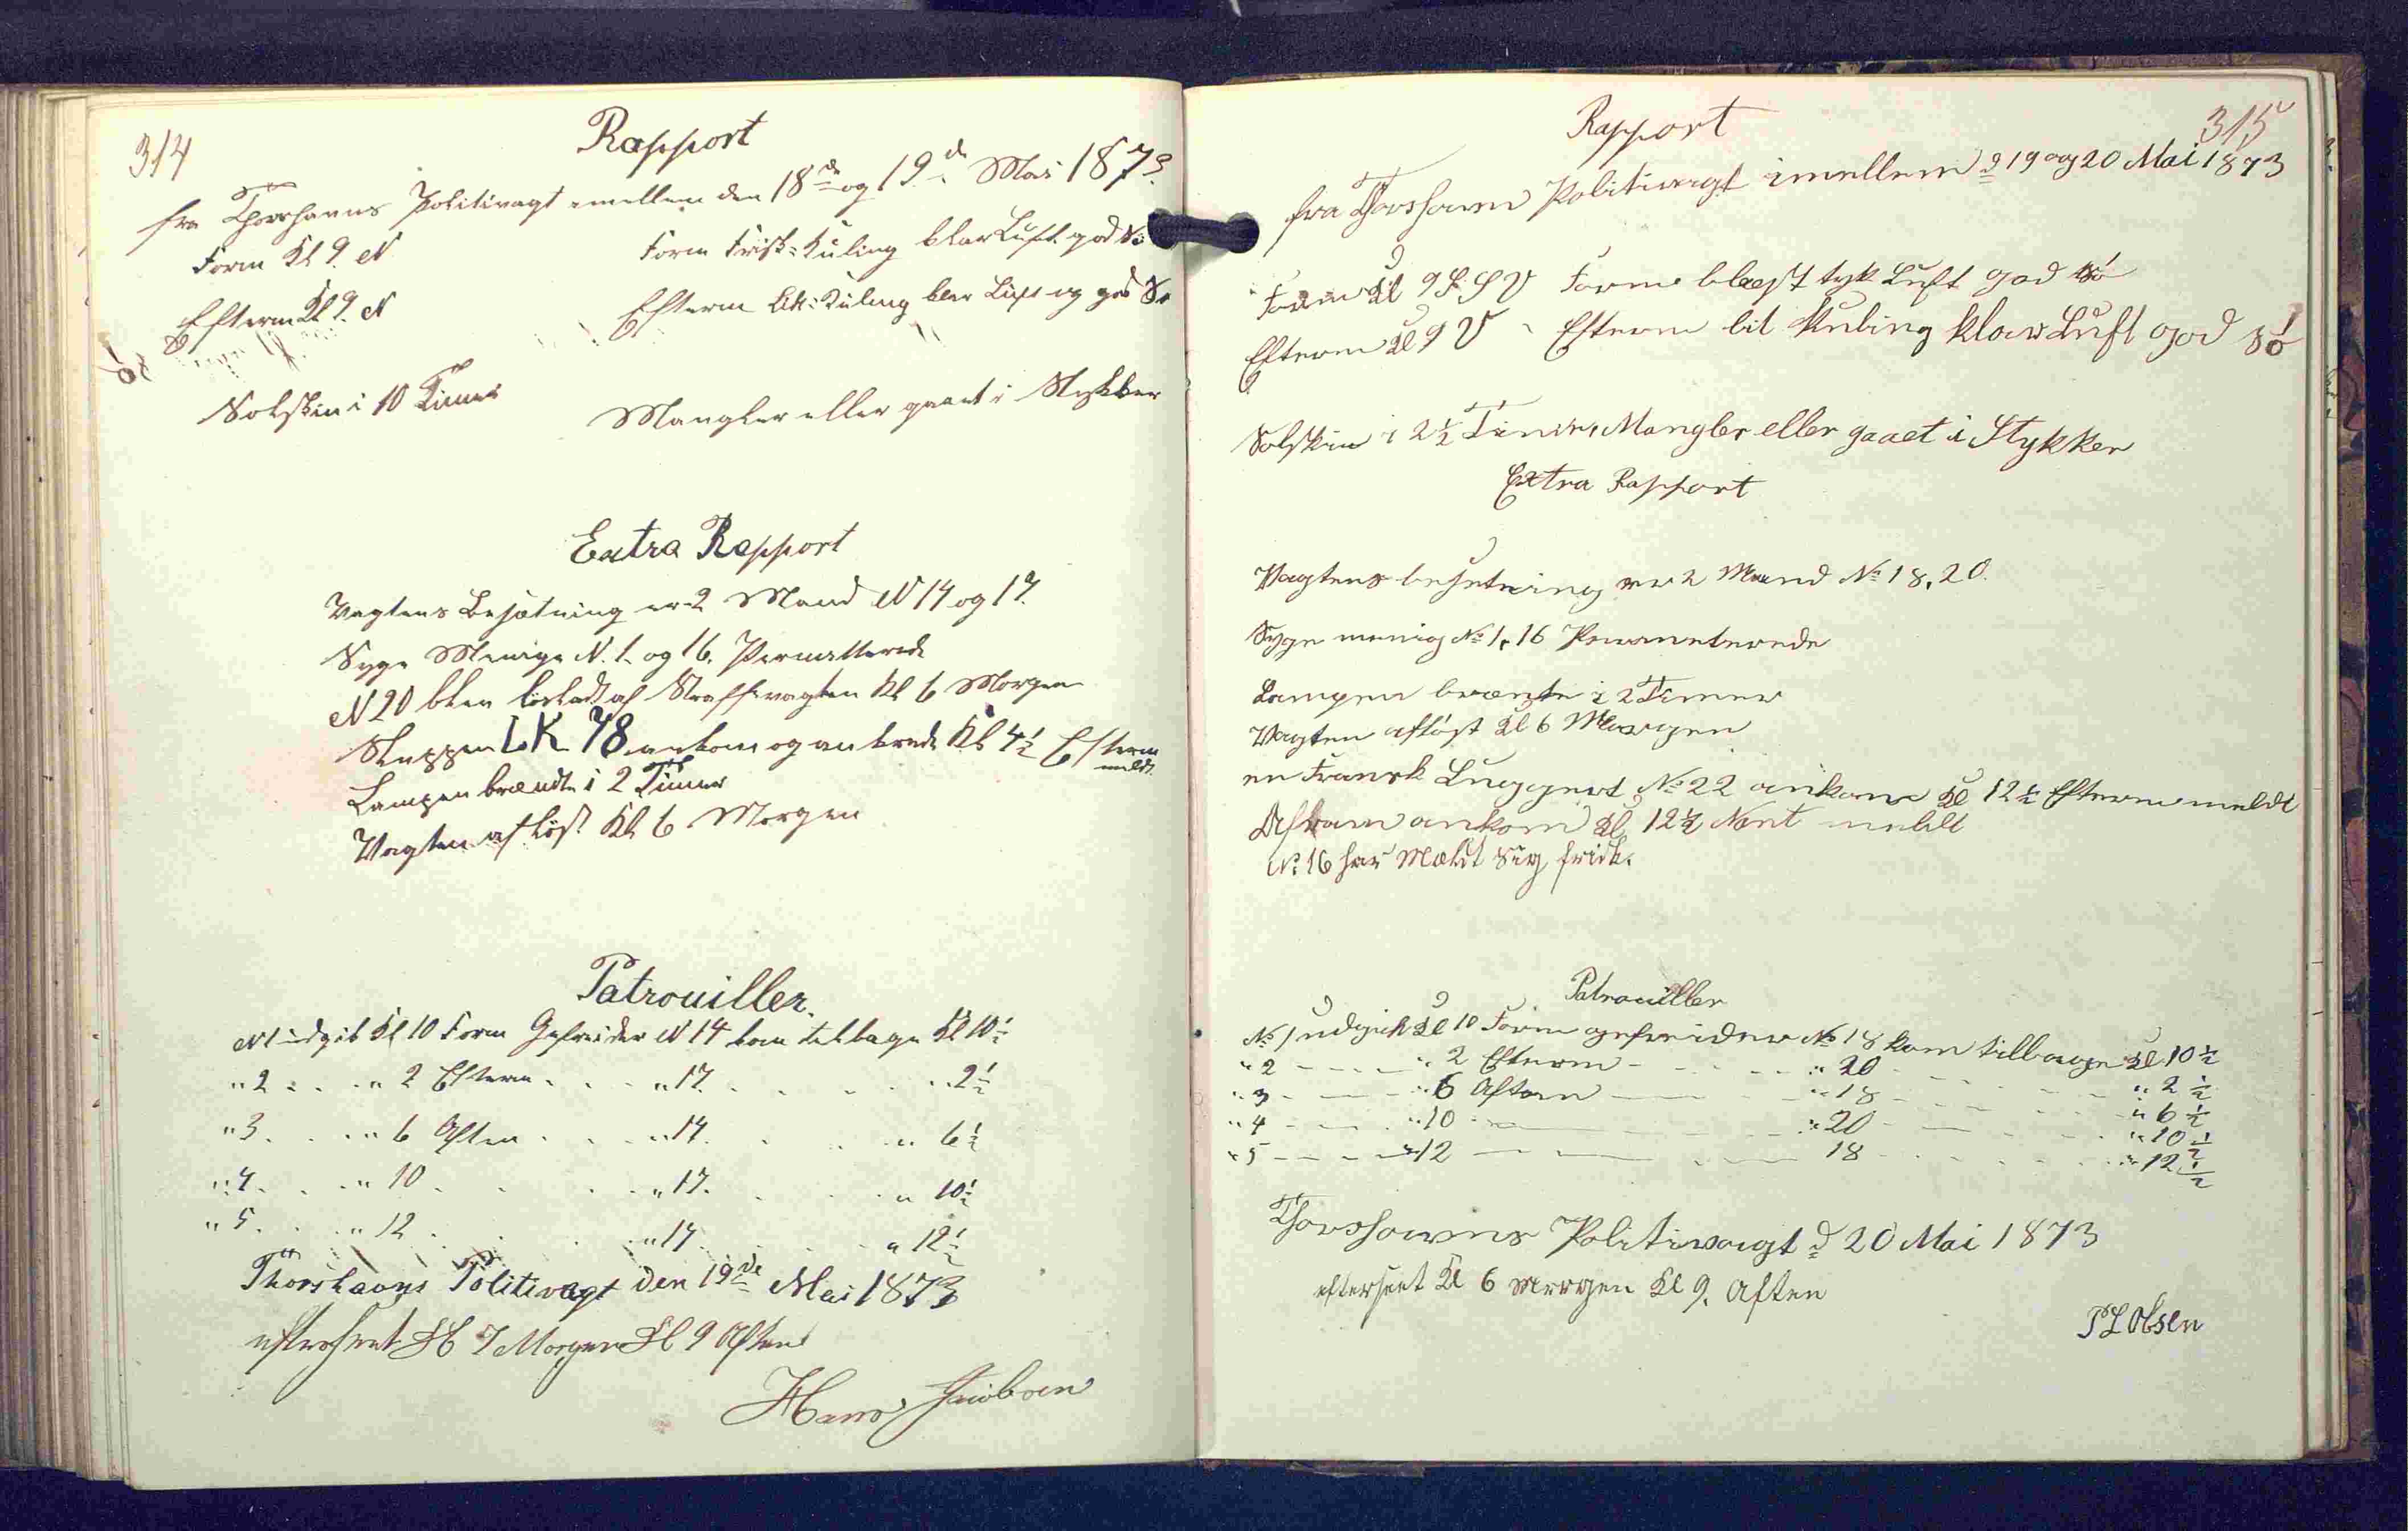 314
Rapport
fra Thorshavns Politivagt imellem den 18de og 19de Mai 1873
Form Kl 9. N Form Frisk-Kuling klar Luft god Sö
Efterm Kl 9. N Efterm Lit-Kuling klar Luft og god Sö
Solskin i 10 Timer Mangler eller gaaet i Stykker
Extra Rapport
Vagtens Besætning er 2 Mand N 14 og 17.
Syge Menige N. 1. og 16. Permitterede
N 20 blev lösladt af Straffevagten Kl 6 Morgen
Sluppen LK 78 ankom og ankrede Kl 4½ Efterm
meldt.
Lampen brændte i 2 Timer
Vagten aflöst Kl 6 Morgen
Patrouiller.
N 1 udgik Kl 10 Form Gefreider N 14 kom tilbage Kl 10½
" 2 . . . " 2 Efterm . . . " 17. . . . . " 2½
" 3. . . . " 6 Aften . . . " 14. . . . . " 6½
" 4. . . . " 10 . . . . " 17. . . . . " 10½
" 5. . . " 12 . . . . " 14. . . . . " 12½
Thorshavns Politivagt den 19de Mai 1873
efterseet Kl 7 Morgen Kl 9 Aften
Hans Jacobsen
315
Rapport
fra Thorshavn Politivagt imellem d 19 og 20 Mai 1873
Form Kl 9 S S V Form blæst tyk Luft god Sö
Efterm Kl 9 V - Efterm lit Kuling klar Luft god Sö
Solskin i 2½ Timer, Mangler eller gaaet i Stykker
Extra Rapport
Vagtens besetning er 2 Mand No 18, 20.
Syge menig No 1, 16 Permeterede
Lampen brænte i 2 Timer
Vagten aflöst Kl 6 Morgen
en Fransk Luggert No 22 ankom Kl 12½ Efterm meldt
ankom Kl 12½ Nat meldt
No 16 har Mældt Sig frisk.
Patrouiller
No 1 udgik Kl 10 Form gefreider No 18 kom tilbage Kl 10½
" 2 - - - - " 2 Efterm - - - - " 20 - - - - " 2½
" 3 - - - - " 6 Aften - - - - " 18 - - - - " 6½
" 4 - - - " 10 - - - - " 20 - - - - " 10½
" 5 - - - - " 12 - - - - 18 - - - - " 12½
Thorshavns Politivagt d 20 Mai 1873
efterseet Kl 6 Morgen Kl 9. Aften
P L Olsen